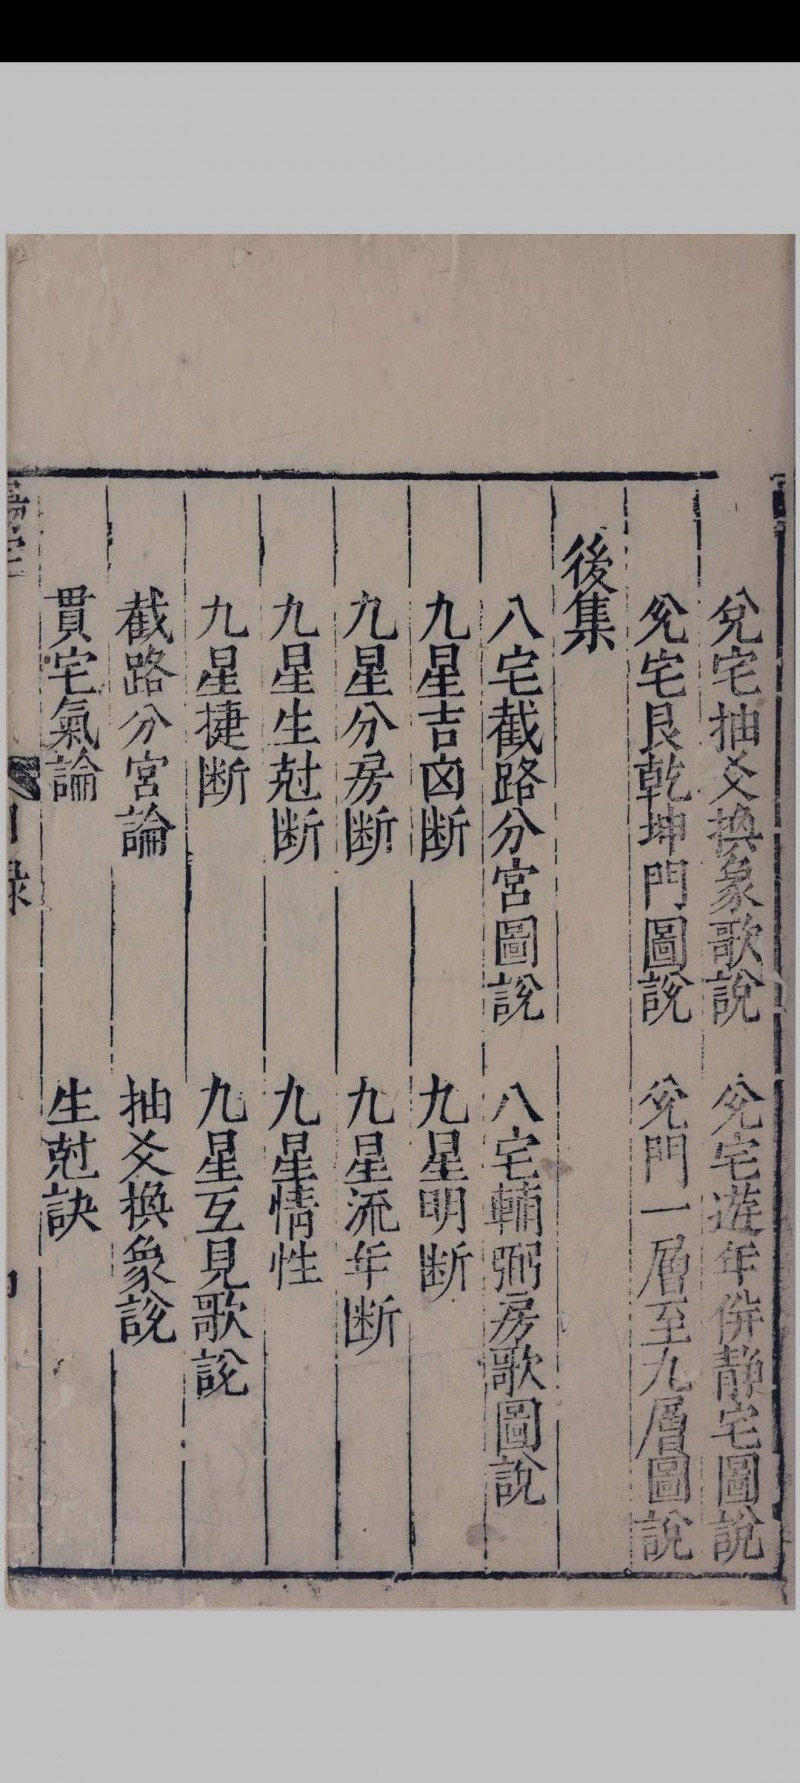 兌宅抽爻換象歌說　兌宅遊年併靜宅圖說
兌宅艮乾坤門圖說　兌門一層至九層圖說
後集
八宅截路分宮圖說　八宅輔弼房歌圖說
九星吉凶断　九星明断
九星分房断　九星流年断
九星生尅断　九星情性
九星捷断　九星互見歌說
截路分宮論　抽爻換象說
貫宅氣論　生尅訣